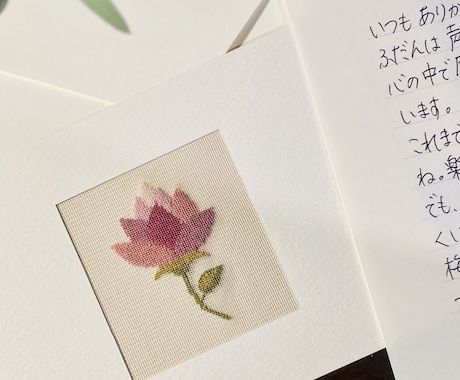 いつも ありが
ふだんは 声
心の中で
います。
これまで
ね。楽
でも、
くい
梅